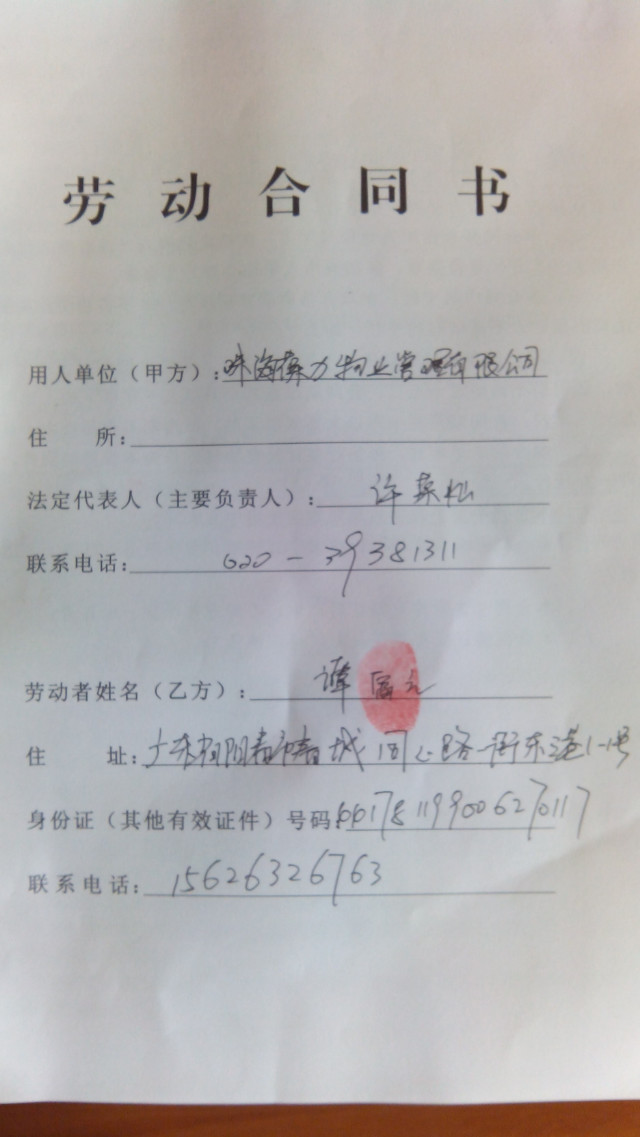 劳动合同书
用人单位（甲方）：珠海 力物业管理有限公司
住 所：
法定代表人（主要负责人）：许 松
联系电话：020-39381311
劳动者姓名（乙方）：谭
住 址：广东省阳春市春城 同心路 街东 1-1号
身份证（其他有效证件）号码：
联系电话：15626326763